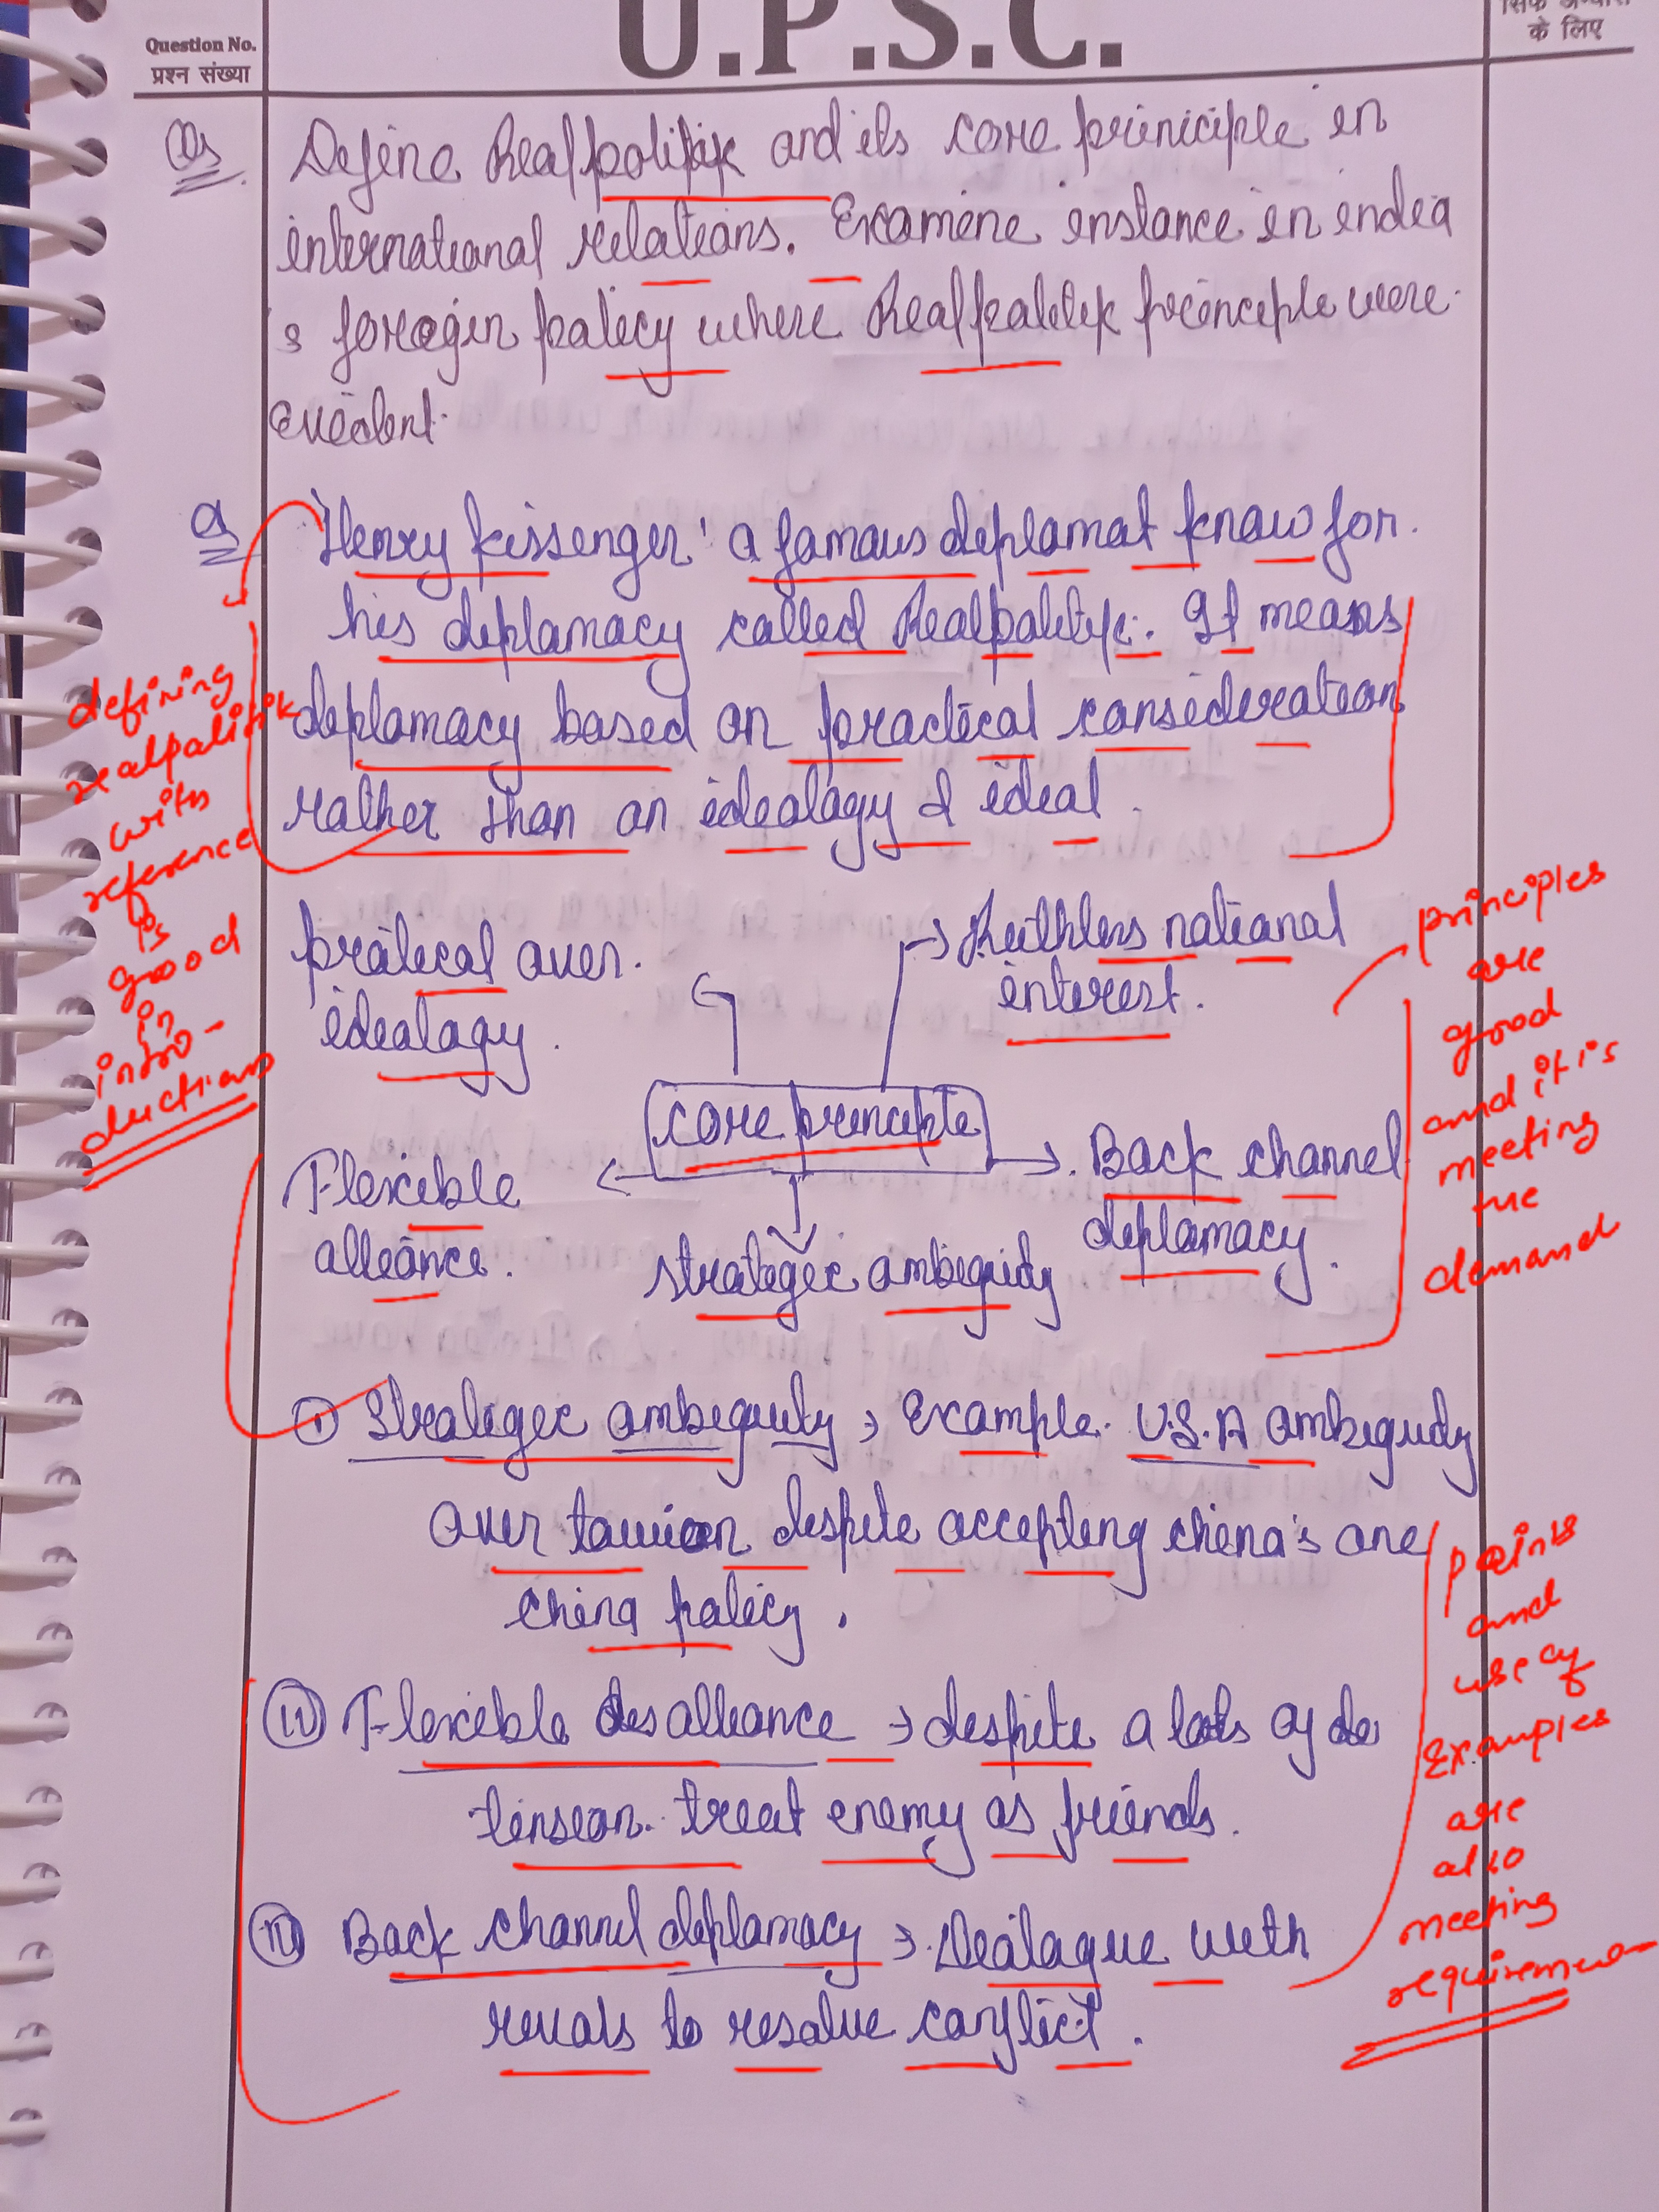 U.P.S.C.
Question No.
प्रश्न संख्या
के लिए
Qs Define Realpolitik and its core priniciple in
international relations. Examine instance in india
's foregin policy where Realpolitik principle were
evident.
Henry kissenger' a famous diplomat know for
his diplomacy called Realpolityc. It means
diplomacy based on practical consideration
rather than on idealogy & ideal.
defining
realpolitik
with
reference
is
good
in
intro-
ductions
pratical over
idealogy.
→ Ruthless national
interest.
principles
are
good
and it is
meeting
the
demand
core principle
Flexible
alliance.
Back channel
diplomacy.
strategic ambiguidy
① Strategic ambiguity → Example. U.S.A ambiguidy
over taiwan despite accepting china's one
china policy.
② Flexible alliance → despite a lots of
tension. treat enemy as friends.
Back channel diplomacy → Dialogue with
rivals to resolve conflict.
points
and
use of
Examples
are
also
meeting
requirement